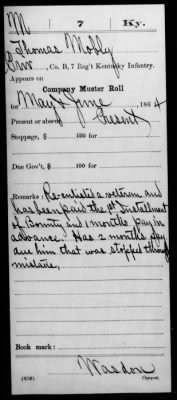 M | 7 | Ky.
Thomas Mobly
, Co. B, 7 Reg't Kentucky Infantry.
Appears on
Company Muster Roll
for May & June, 1864
Present or absent Present
Stoppage, $ 100 for
Due Gov't, $ 100 for
Remarks: Re-enlisted as veteran and
has been paid the 1st Installment
of Bounty and 1 months pay in
advance. Has 2 months pay
due him that was stopped through
mistake.
Book mark:
Wasdon
(358) Copyist.